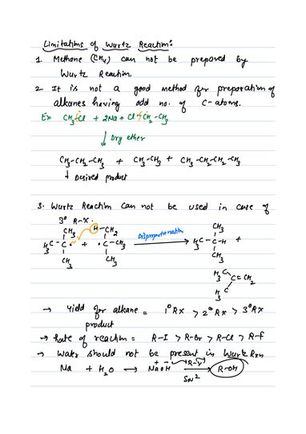 Limitations of Wurtz Reaction:
1. Methane (CH4) can not be prepared by
Wurtz Reaction
2. It is not a good method for preparation of
alkanes having odd no. of C-atoms.
Ex CH3Cl + 2Na + Cl CH2-CH3
↓ Dry ether
CH3-CH2-CH3 + CH3-CH3 + CH3-CH2-CH2-CH3
↓ Desired product
3. Wurtz Reaction can not be used in case of
3° R-X.
CH3 H-CH2 CH3
H3C-C• + •C-CH3 Disproportionation → H3C-C-H +
CH3 CH3 CH3
H3C
C=CH2
CH3
→ Yield for alkane = 1° RX > 2° RX > 3° RX
product
→ Rate of reaction = R-I > R-Br > R-Cl > R-F
→ Water should not be present in Wurtz Rxn
Na + H2O → NaOH R-X → R-OH
SN2